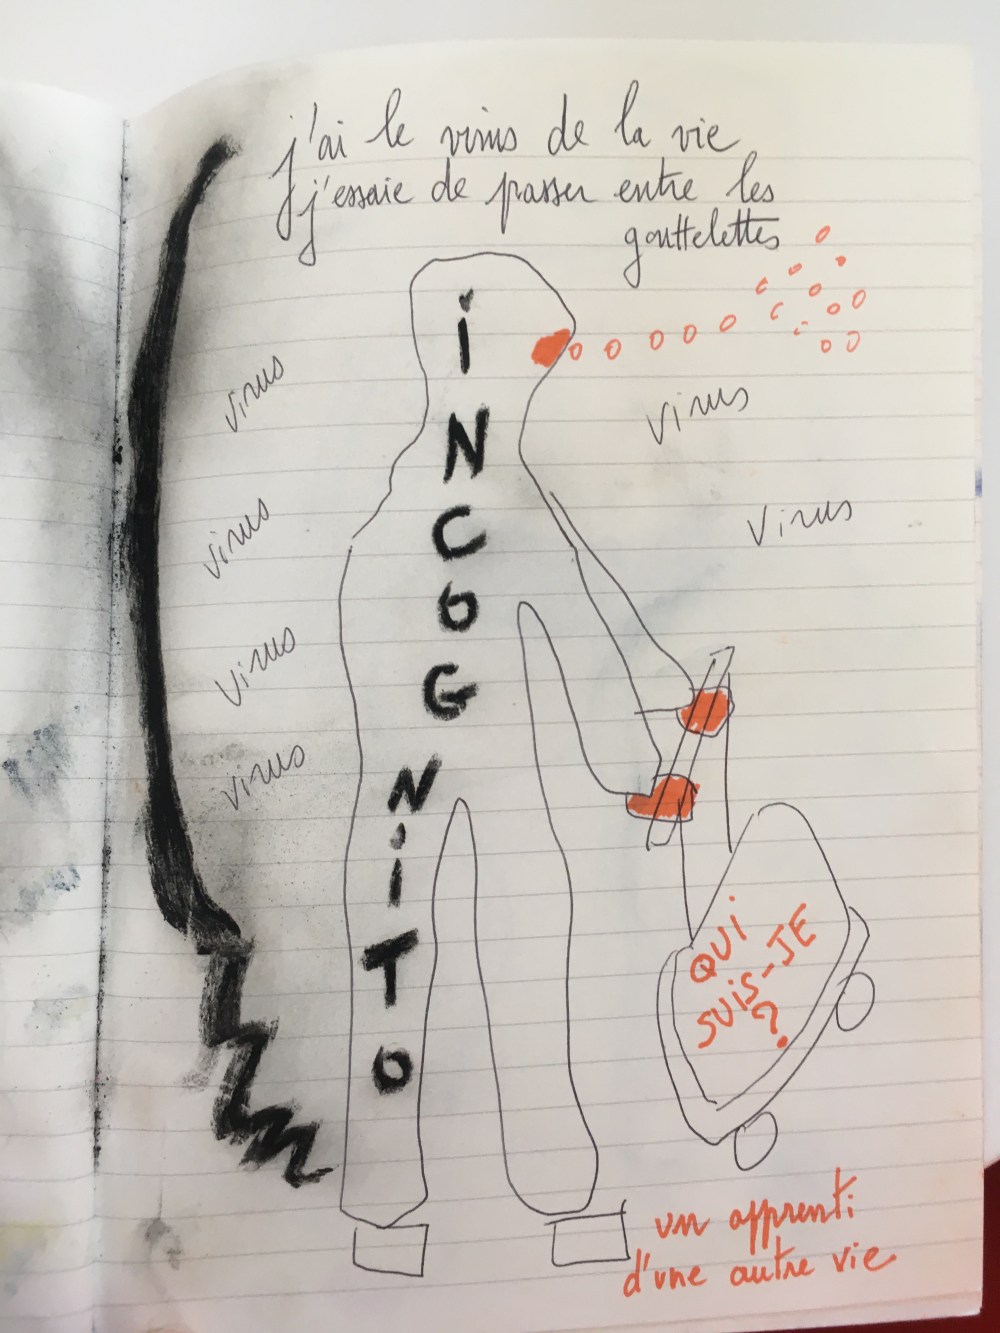 j'ai le virus de la vie
j'essaie de passer entre les
gouttelettes
iNCOGNiTO
virus
virus
virus
virus
virus
virus
QUI
SUIS-JE
?
un apprenti
d'une autre vie